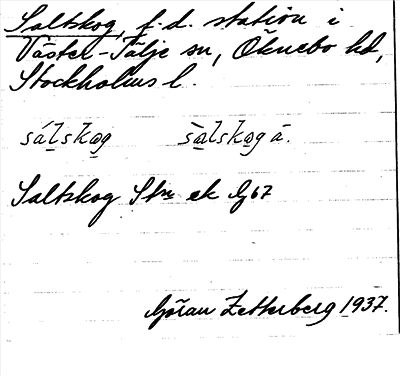 Saltskog, f.d. station i
Väster-Tälje sn, Öknebo hd,
Stockholms l.
sálskog sàlskog ā.
Saltskog Stn ek G67
Göran Zetterberg 1937.